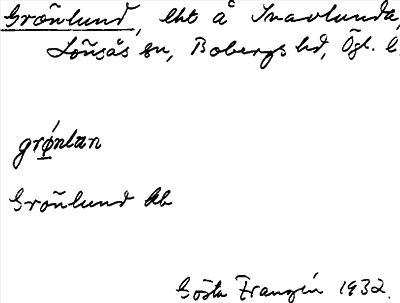 Grönlund, lht å Svavlunda,
Lönsås sn, Bobergs hd, Ögl. l.
grǿnlan
Grönlund Ab
Gösta Franzén 1932.